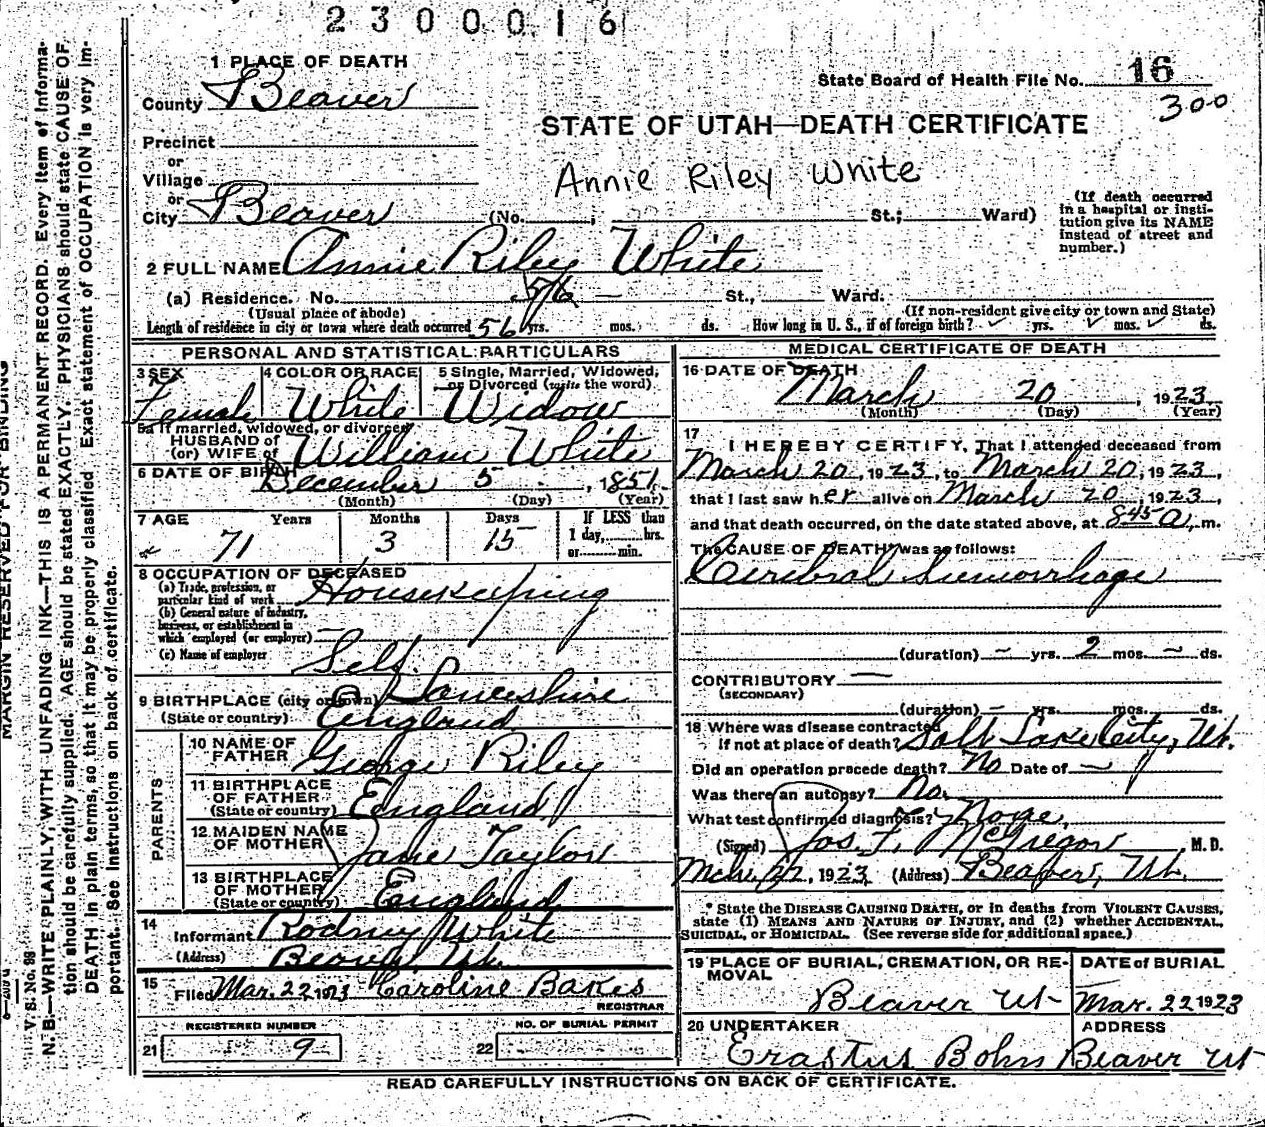 2300016
1 PLACE OF DEATH
State Board of Health File No. 16
County Beaver
300
STATE OF UTAH—DEATH CERTIFICATE
Precinct
or
Village
Annie Riley White
or
City Beaver (No. ; St.; Ward)
(If death occurred in a hospital or insti-
tution give its NAME instead of street and number.)
2 FULL NAME Annie Riley White
(a) Residence. No. 56 — St., Ward.
(Usual place of abode)
(If non-resident give city or town and State)
Length of residence in city or town where death occurred 56 yrs. mos. ds. How long in U. S., if of foreign birth? ✓ yrs. ✓ mos. ✓ ds.
PERSONAL AND STATISTICAL PARTICULARS
3 SEX Female
4 COLOR OR RACE White
5 Single, Married, Widowed,
or Divorced (write the word)
Widow
5a If married, widowed, or divorced
HUSBAND of
(or) WIFE of William White
6 DATE OF BIRTH December 5 , 1851.
(Month) (Day) (Year)
7 AGE Years Months Days If LESS than
1 day, hrs.
or min.
71 3 15
8 OCCUPATION OF DECEASED
(a) Trade, profession, or
particular kind of work Housekeeping
(b) General nature of industry,
business, or establishment in
which employed (or employer) —
(c) Name of employer Self.
9 BIRTHPLACE (city or town) Lancashire
(State or country) England
PARENTS
10 NAME OF
FATHER George Riley
11 BIRTHPLACE
OF FATHER
(State or country) England
12 MAIDEN NAME
OF MOTHER Jane Taylor
13 BIRTHPLACE
OF MOTHER
(State or country) England
14
Informant Rodney White
(Address) Beaver, Ut.
15
Filed Mar. 22 1923 Caroline Bakes
REGISTRAR
REGISTERED NUMBER
21 9
NO. OF BURIAL PERMIT
22
MEDICAL CERTIFICATE OF DEATH
16 DATE OF DEATH
March 20 , 1923
(Month) (Day) (Year)
17
I HEREBY CERTIFY, That I attended deceased from
March 20, 1923, to March 20, 1923,
that I last saw her alive on March 20, 1923,
and that death occurred, on the date stated above, at 845 a. m.
The CAUSE OF DEATH* was as follows:
Cerebral hemorrhage
(duration) — yrs. 2 mos. — ds.
CONTRIBUTORY —
(SECONDARY)
(duration) — yrs. mos. ds.
18 Where was disease contracted
if not at place of death? Salt Lake City, Ut.
Did an operation precede death? No Date of —
Was there an autopsy? No.
What test confirmed diagnosis? None.
(Signed) Jos. F. McGregor M. D.
Mch. 22, 1923, (Address) Beaver, Ut.
* State the DISEASE CAUSING DEATH, or in deaths from VIOLENT CAUSES,
state (1) MEANS AND NATURE OF INJURY, and (2) whether ACCIDENTAL,
SUICIDAL, or HOMICIDAL. (See reverse side for additional space.)
19 PLACE OF BURIAL, CREMATION, OR RE-
MOVAL
Beaver Ut
DATE of BURIAL
Mar. 22 1923
20 UNDERTAKER
Erastus Bohn
ADDRESS
Beaver Ut
READ CAREFULLY INSTRUCTIONS ON BACK OF CERTIFICATE.
MARGIN RESERVED FOR BINDING
V. S. No. 98
N. B.—WRITE PLAINLY, WITH UNFADING INK—THIS IS A PERMANENT RECORD. Every item of informa-
tion should be carefully supplied. AGE should be stated EXACTLY. PHYSICIANS should state CAUSE OF
DEATH in plain terms, so that it may be properly classified. Exact statement of OCCUPATION is very im-
portant. See instructions on back of certificate.